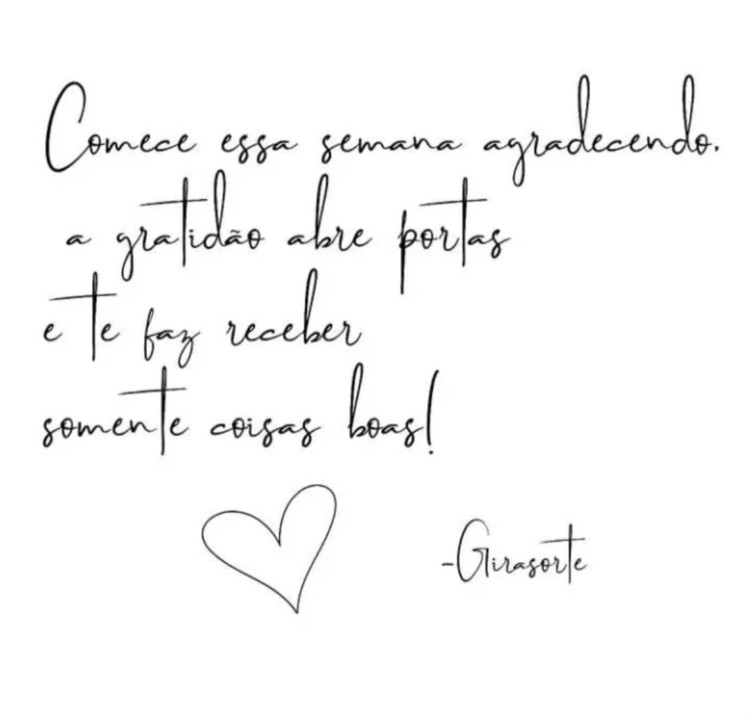 Comece essa semana agradecendo.
a gratidão abre portas
e te faz receber
somente coisas boas!
-Girasorte